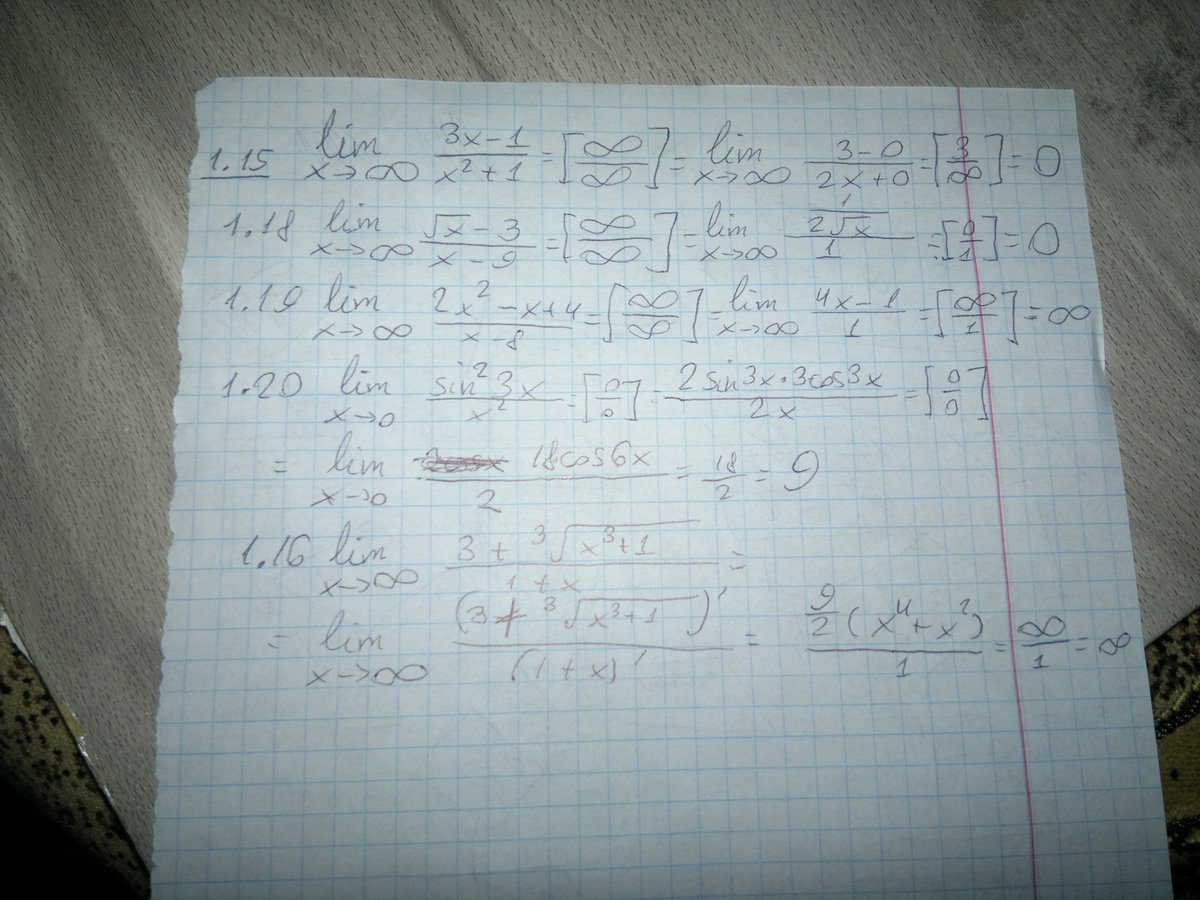 1.15 lim x→∞ (3x-1)/(x²+1) = [∞/∞] = lim x→∞ (3-0)/(2x+0) = [3/∞] = 0
1.18 lim x→∞ (√x - 3)/(x-9) = [∞/∞] = lim x→∞ (1/(2√x))/1 = [0/1] = 0
1.19 lim x→∞ (2x² - x+4)/(x-8) = [∞/∞] = lim x→∞ (4x-1)/1 = [∞/1] = ∞
1.20 lim x→0 (sin² 3x)/x² = [0/0] = (2 sin 3x · 3cos 3x)/(2x) = [0/0]
= lim x→0 (18cos 6x)/2 = 18/2 = 9
1.16 lim x→∞ (3 + ³√(x³+1))/(1+x) =
= lim x→∞ (3 + ³√(x³+1))'/(1+x)' = (9/2 (x⁴+x²))/1 = ∞/1 = ∞